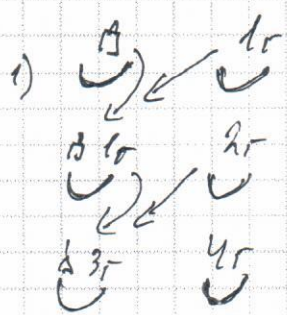 1) 1г
1г 2г
3г 4г